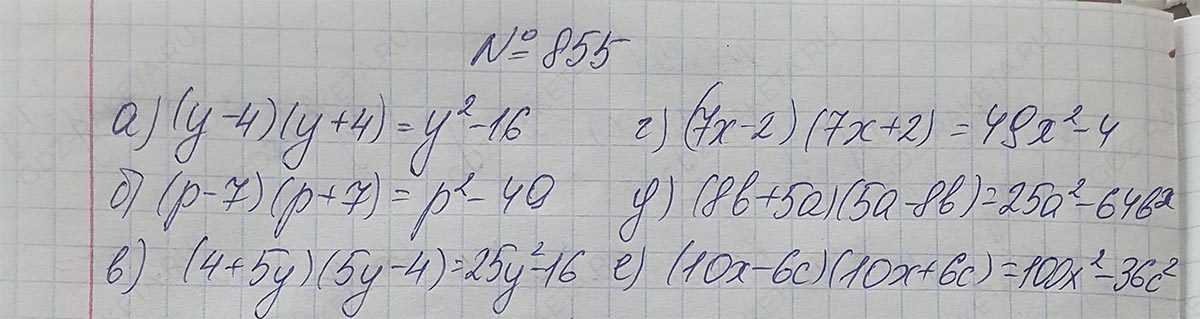 № 855
а) (y-4)(y+4) = y²-16
г) (7x-2)(7x+2) = 49x²-4
б) (p-7)(p+7) = p²-49
д) (8b+5a)(5a-8b)=25a²-64b²
в) (4+5y)(5y-4)=25y²-16
е) (10x-6c)(10x+6c)=100x²-36c²